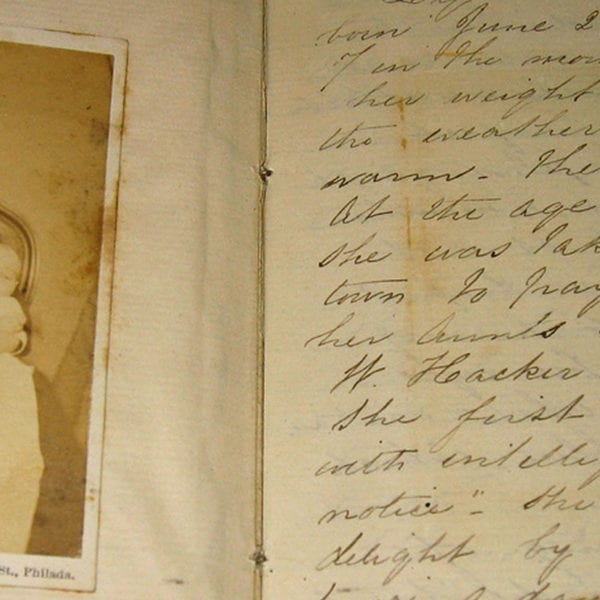 St., Philada.
born June 2
7 in the mor
her weight
the weather
warm - The
At the age
she was tak
town to pay
her Aunts
W. Hacker
she first
with intelle
notice" - She
delight by